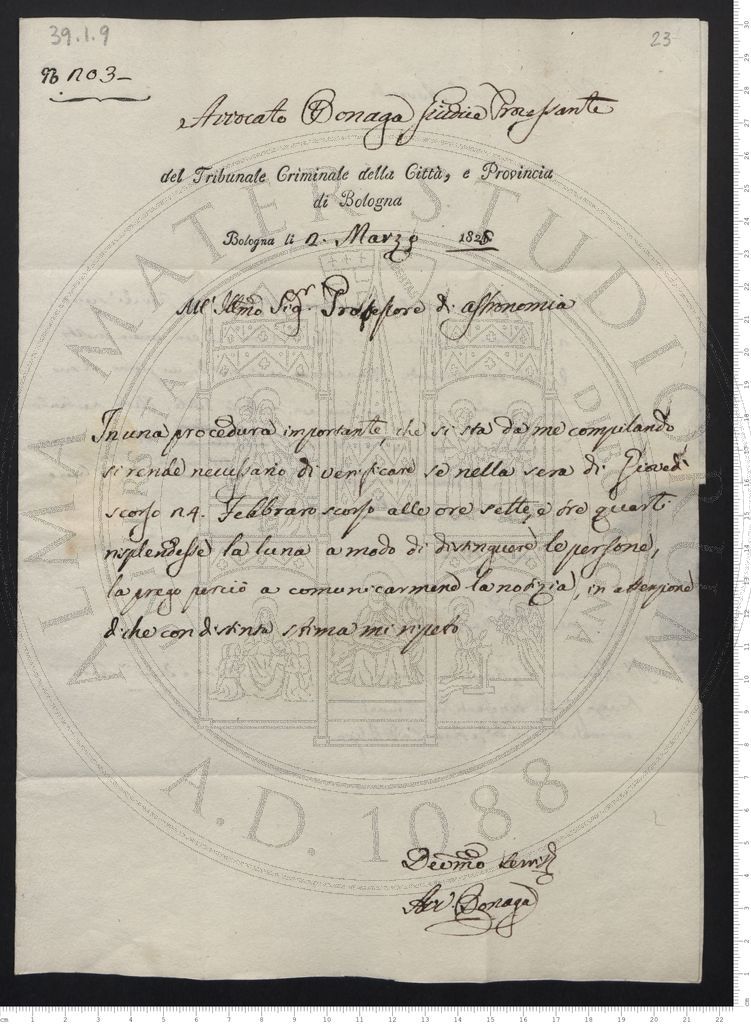 39.1.9
23
N° 203
Avvocato Donaga Giudice Processante
del Tribunale Criminale della Città, e Provincia
di Bologna
Bologna li 2. Marzo 1825
All' Illmo Sigr. Professore di astronomia
In una procedura importante, che si sta da me compilando
si rende necessario di verificare se nella sera di Giovedì
scorso 24. Febbraro scorso alle ore sette, e tre quarti
risplendesse la luna a modo di distinguere le persone,
la prego perciò a comunicarmene la notizia, in attenzione
di che con distinta stima mi ripeto
Devmo Servre
Avv. Donaga
ALMA MATER STUDIORUM
A.D. 1088